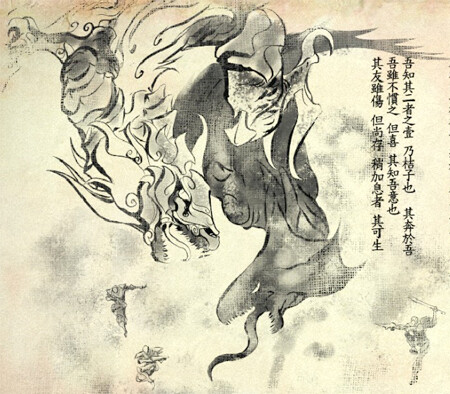 吾知其二者之壹 乃桔子也 其奔於吾
吾雖不慣之 但喜 其知吾意也
其友雖傷 但尚存 稍加息者 其可生